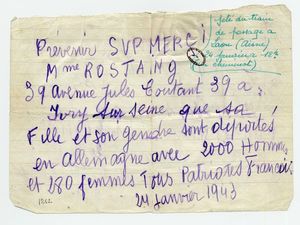 Prevenir SVP MERCI
Mme ROSTAING
39 avenue Jules Coutant 39 a
Ivry sur seine que sa
Fille et son gendre sont déportés
en Allemagne avec 2000 Hommes
et 230 femmes Tous Patriotes Francais
24 janvier 1943
jeté du train
de passage à
Laon (Aisne)